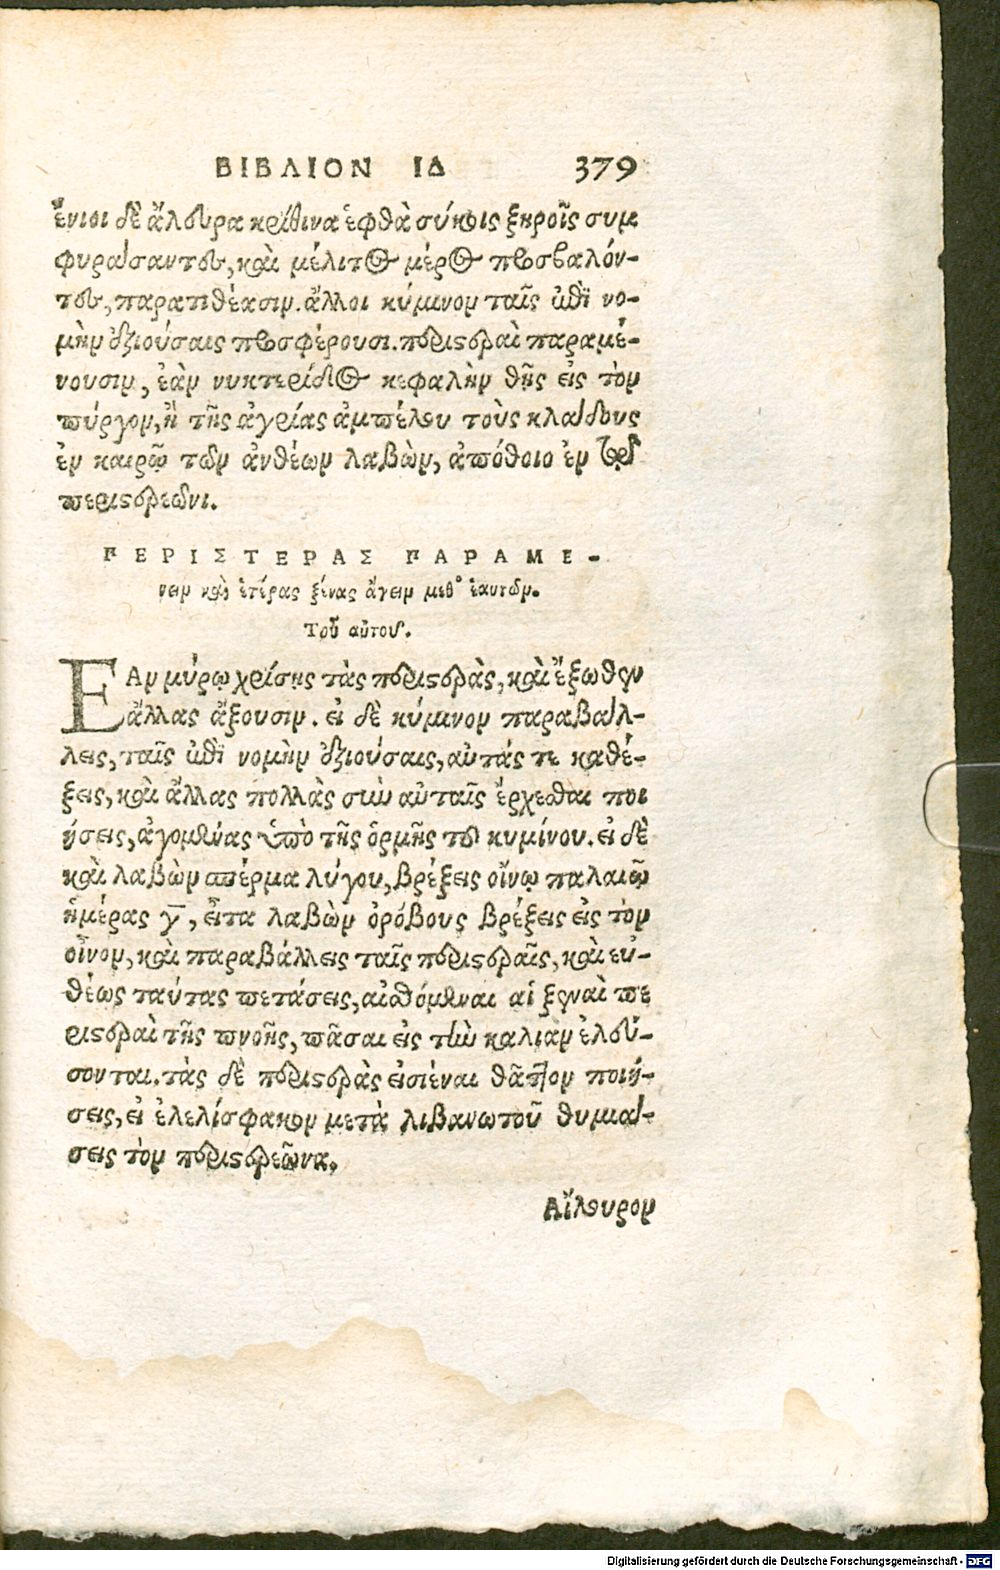 ΒΙΒΛΙΟΝ ΙΔ 379
ἔνιοι δὲ ἄλουρα κρίθινα ἑφθὰ σύκοις ξηροῖς συμ
φυράσαντες, καὶ μέλιτος μέρος προσβαλόν-
τες, παρατιθέασιν. ἄλλοι κύμινον ταῖς ἐπὶ νο-
μὴν ἐξιούσαις προσφέρουσι. περιστεραὶ παραμέ-
νουσιν, ἐὰν νυκτερίδος κεφαλὴν θῇς εἰς τὸν
πύργον, ἢ τῆς ἀγρίας ἀμπέλου τοὺς κλάδους
ἐν καιρῷ τῶν ἀνθέων λαβὼν, ἀπόθοιο ἐν τῷ
περιστερεῶνι.
ΠΕΡΙΣΤΕΡΑΣ ΠΑΡΑΜΕ-
νειν καὶ ἑτέρας ξένας ἄγειν μεθ' ἑαυτῶν.
Τοῦ αὐτοῦ.
ΕΑν μύρῳ χρίσῃς τὰς περιστερὰς, καὶ ἔξωθεν
ἄλλας ἄξουσιν. εἰ δὲ κύμινον παραβάλ-
λεις, ταῖς ἐπὶ νομὴν ἐξιούσαις, αὐτάς τε καθέ-
ξεις, καὶ ἄλλας πολλὰς σὺν αὐταῖς ἔρχεσθαι ποι
ήσεις, ἀγομένας ὑπὸ τῆς ὀρμῆς τοῦ κυμίνου. εἰ δὲ
καὶ λαβὼν σπέρμα λύγου, βρέξεις οἴνῳ παλαιῷ
ἡμέρας γ, εἶτα λαβὼν ὀρόβους βρέξεις εἰς τὸν
οἶνον, καὶ παραβάλλεις ταῖς περιστεραῖς, καὶ εὐ-
θέως ταύτας πετάσεις, αἰσθόμεναι αἱ ξεναὶ πε
ριστεραὶ τῆς πνοῆς, πᾶσαι εἰς τὴν καλιὰν ἐλεύ-
σονται. τὰς δὲ περιστερὰς εἰσιέναι θᾶττον ποιή-
σεις, εἰ ἐλελίσφακον μετὰ λιβανωτοῦ θυμιά-
σεις τὸν περιστερεῶνα.
Αἴλουρον
Digitalisierung gefördert durch die Deutsche Forschungsgemeinschaft - DFG